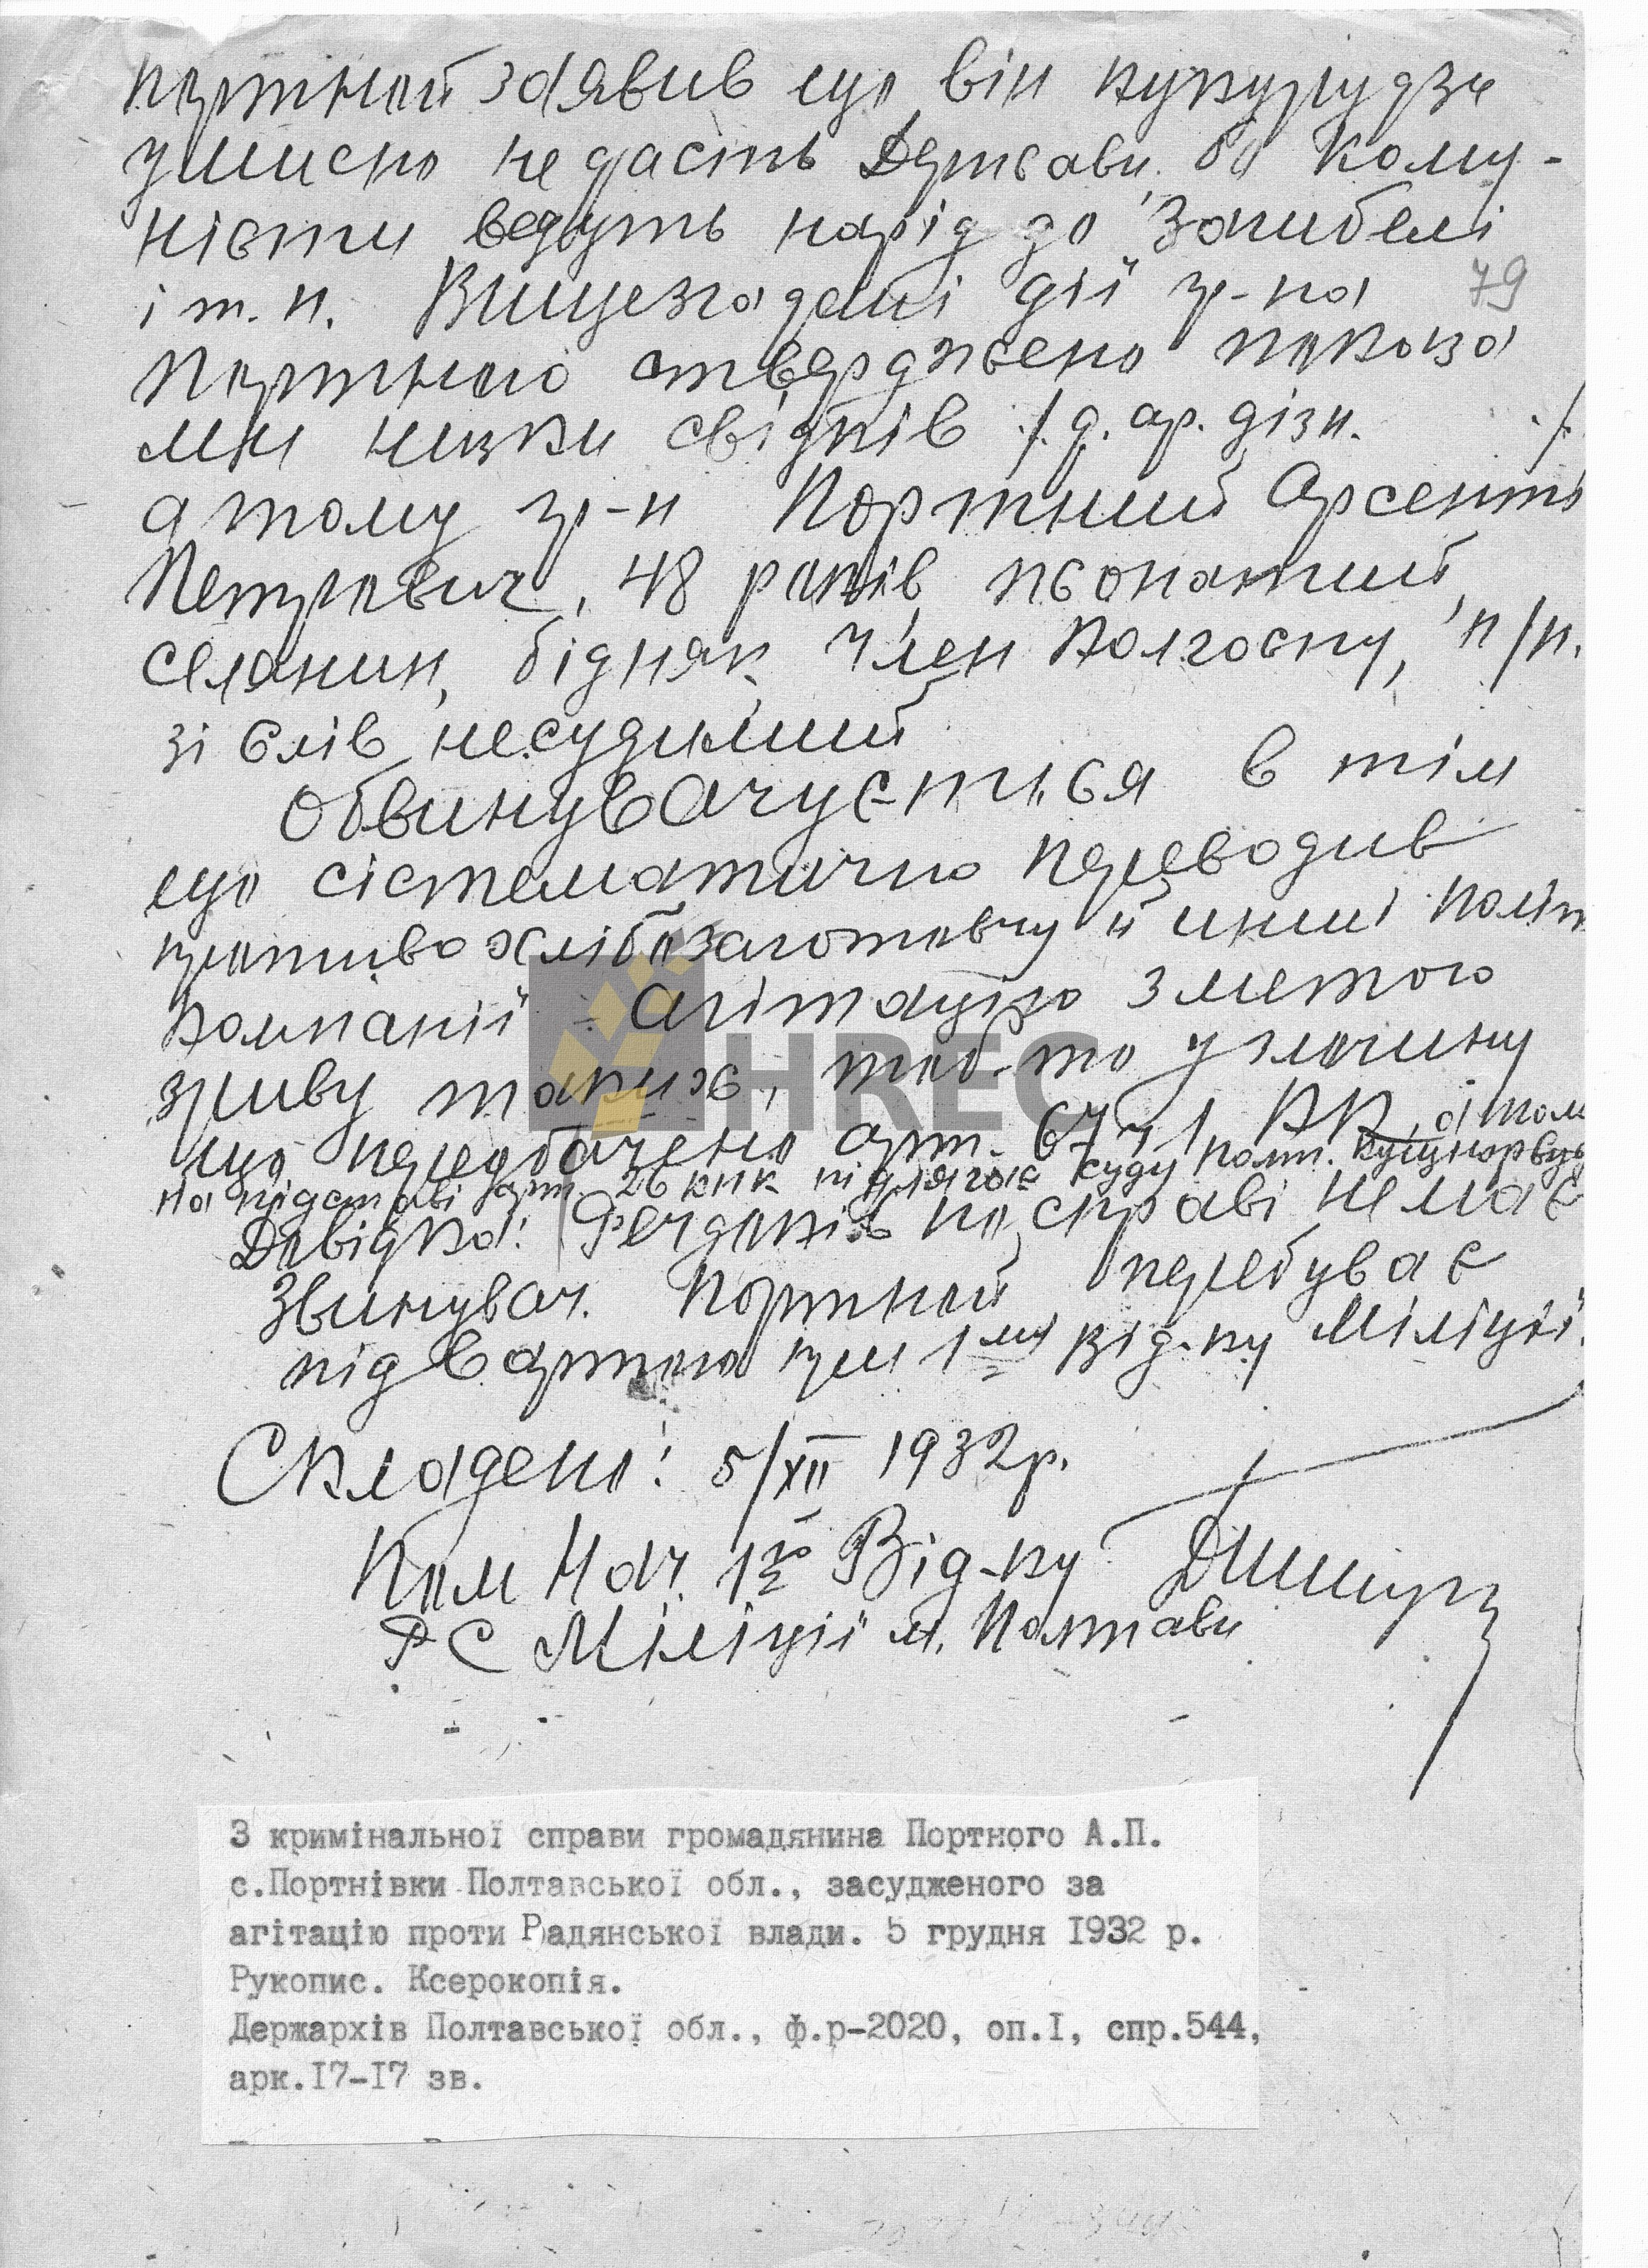 Портной заявив що він кукурудзи
умисно не дасть Держави, бо кому-
ністи ведуть нарід до загибелі
і т.п. Вищезгадані дії гр-на
79
Портного стверджено показа
ми низки свідків /.д. ар. дізн. ./.
а тому гр-н Портний Арсенть
Петрович, 48 років, жонатий,
селянин, бідняк, член колгоспу, п/п.
зі слів несудимий
Обвинувачується в тім
що сістематично переводив
противохлібозаготовчу й инші політ
компанії - агітацію з метою
зриву таких, тоб-то у злочину
що передбачено арт. 67 ч 1 КК, а том
на підставі арт. 26 КПК підлягає суду Полт.
Довідка: Речдоків по справі немає
Звинувач. Портной перебуває
під вартою при 1му від-ку Міліції.
Складено: 5/XII 1932р.
Пом Нач 1го Від-ку
РС Міліції м. Полтави
HREC
З кримінальної справи громадянина Портного А.П.
с.Портнівки Полтавської обл., засудженого за
агітацію проти Радянської влади. 5 грудня І932 р.
Рукопис. Ксерокопія.
Держархів Полтавської обл., ф.р-2020, оп.І, спр.544,
арк.І7-І7 зв.